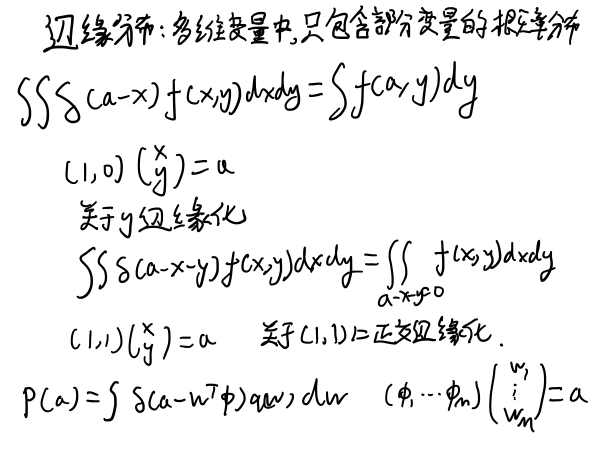 边缘分布:多维变量中,只包含部分变量的概率分布
∫∫δ(a-x)f(x,y)dxdy=∫f(a,y)dy
(1,0)(x y)=a
关于y边缘化
∫∫δ(a-x-y)f(x,y)dxdy=∫∫_{a-x-y=0} f(x,y)dxdy
(1,1)(x y)=a 关于(1,1)正交边缘化.
P(a)=∫δ(a-w^Tφ)q(w)dw (φ₁⋯φ_m)(w₁ ⋮ w_m)=a